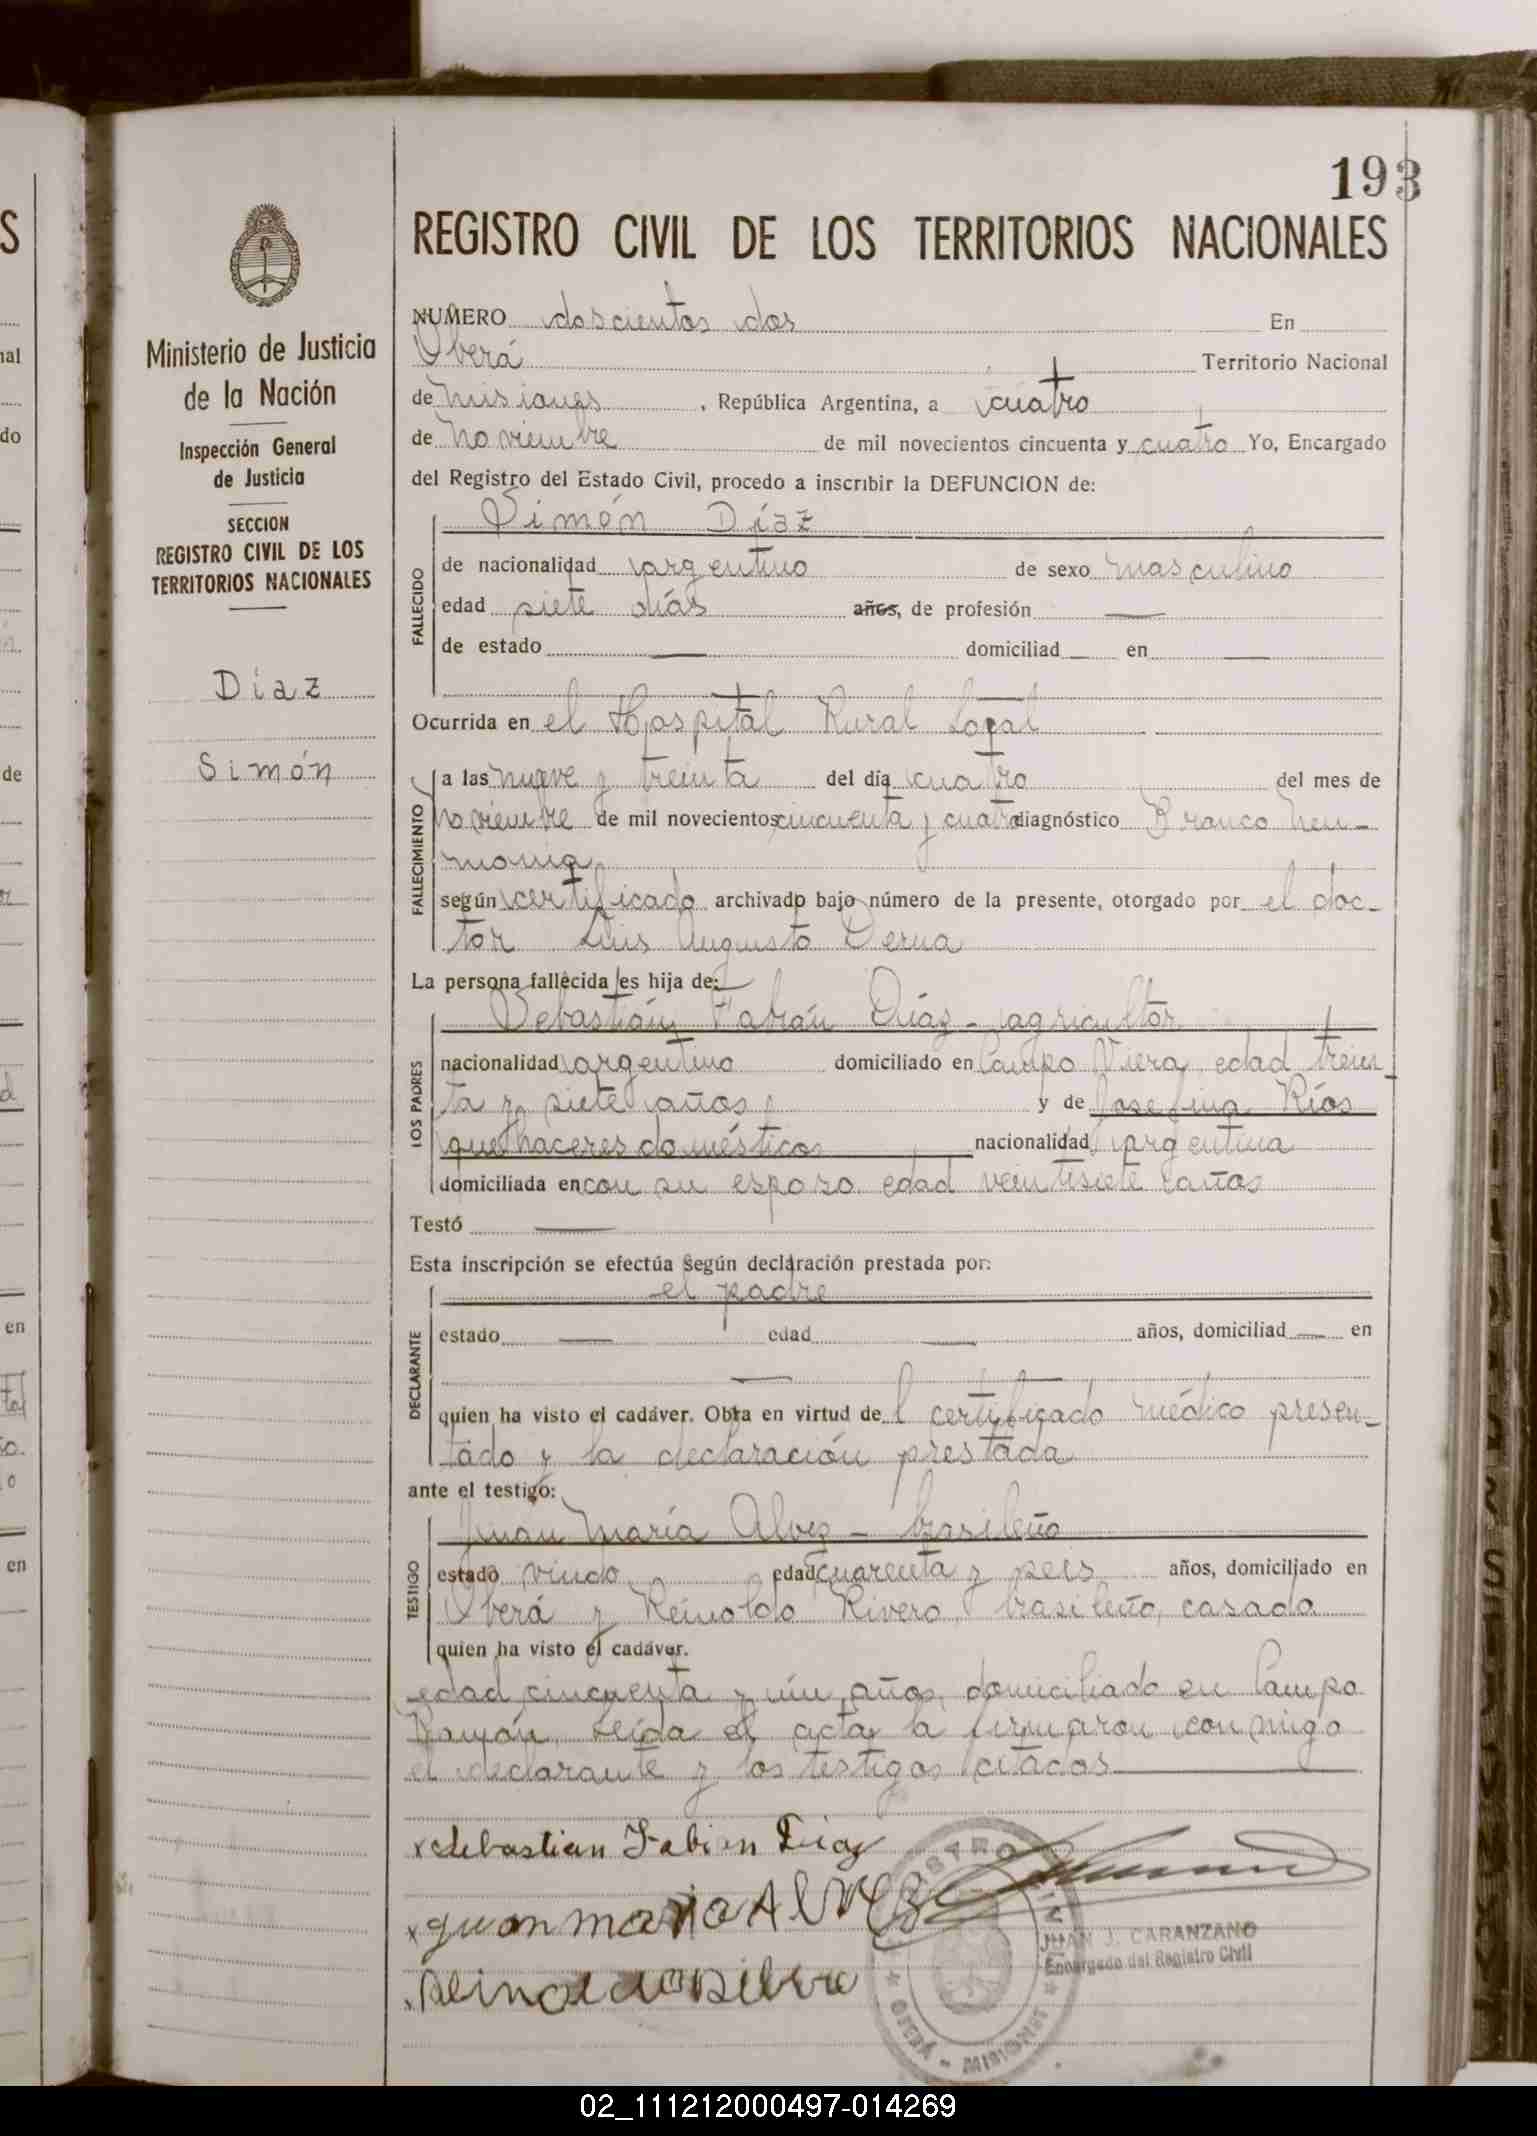 193
REGISTRO CIVIL DE LOS TERRITORIOS NACIONALES
Ministerio de Justicia
de la Nación
Inspección General
de Justicia
SECCION
REGISTRO CIVIL DE LOS
TERRITORIOS NACIONALES
Díaz
Simón
NUMERO doscientos dos En
Oberá Territorio Nacional
de Misiones, República Argentina, a cuatro
de noviembre de mil novecientos cincuenta y cuatro Yo, Encargado
del Registro del Estado Civil, procedo a inscribir la DEFUNCION de:
FALLECIDO
Simón Díaz
de nacionalidad argentino de sexo masculino
edad siete días años, de profesión —
de estado — domiciliad — en —
Ocurrida en el Hospital Rural Local
FALLECIMIENTO
a las nueve y treinta del día cuatro del mes de
noviembre de mil novecientos cincuenta y cuatro diagnóstico Bronco neu-
monia
según certificado archivado bajo número de la presente, otorgado por el doc-
tor Luis Augusto Derna
La persona fallecida es hija de:
LOS PADRES
Sebastián Fabián Díaz - agricultor
nacionalidad argentino domiciliado en Campo Viera edad trein-
ta y siete años y de Josefina Ríos
quehaceres domésticos nacionalidad argentina
domiciliada en con su esposo edad veintisiete años
Testó —
Esta inscripción se efectúa según declaración prestada por:
DECLARANTE
el padre
estado — edad — años, domiciliad — en
—
quien ha visto el cadáver. Obra en virtud del certificado médico presen-
tado y la declaración prestada
ante el testigo:
TESTIGO
Juan María Alvez - brasileño
estado viudo edad cuarenta y seis años, domiciliado en
Oberá y Reinoldo Rivero, brasileño, casado
quien ha visto el cadáver.
edad cincuenta y un años, domiciliado en Campo
Ramón. Leída el acta la firmaron conmigo
el declarante y los testigos citados
x Sebastian Fabian Diaz
x juan maria AlVEZ
x Reinoldo Ribero
JUAN J. CARANZANO
Encargado del Registro Civil
OBERÁ - MISIONES
02_111212000497-014269